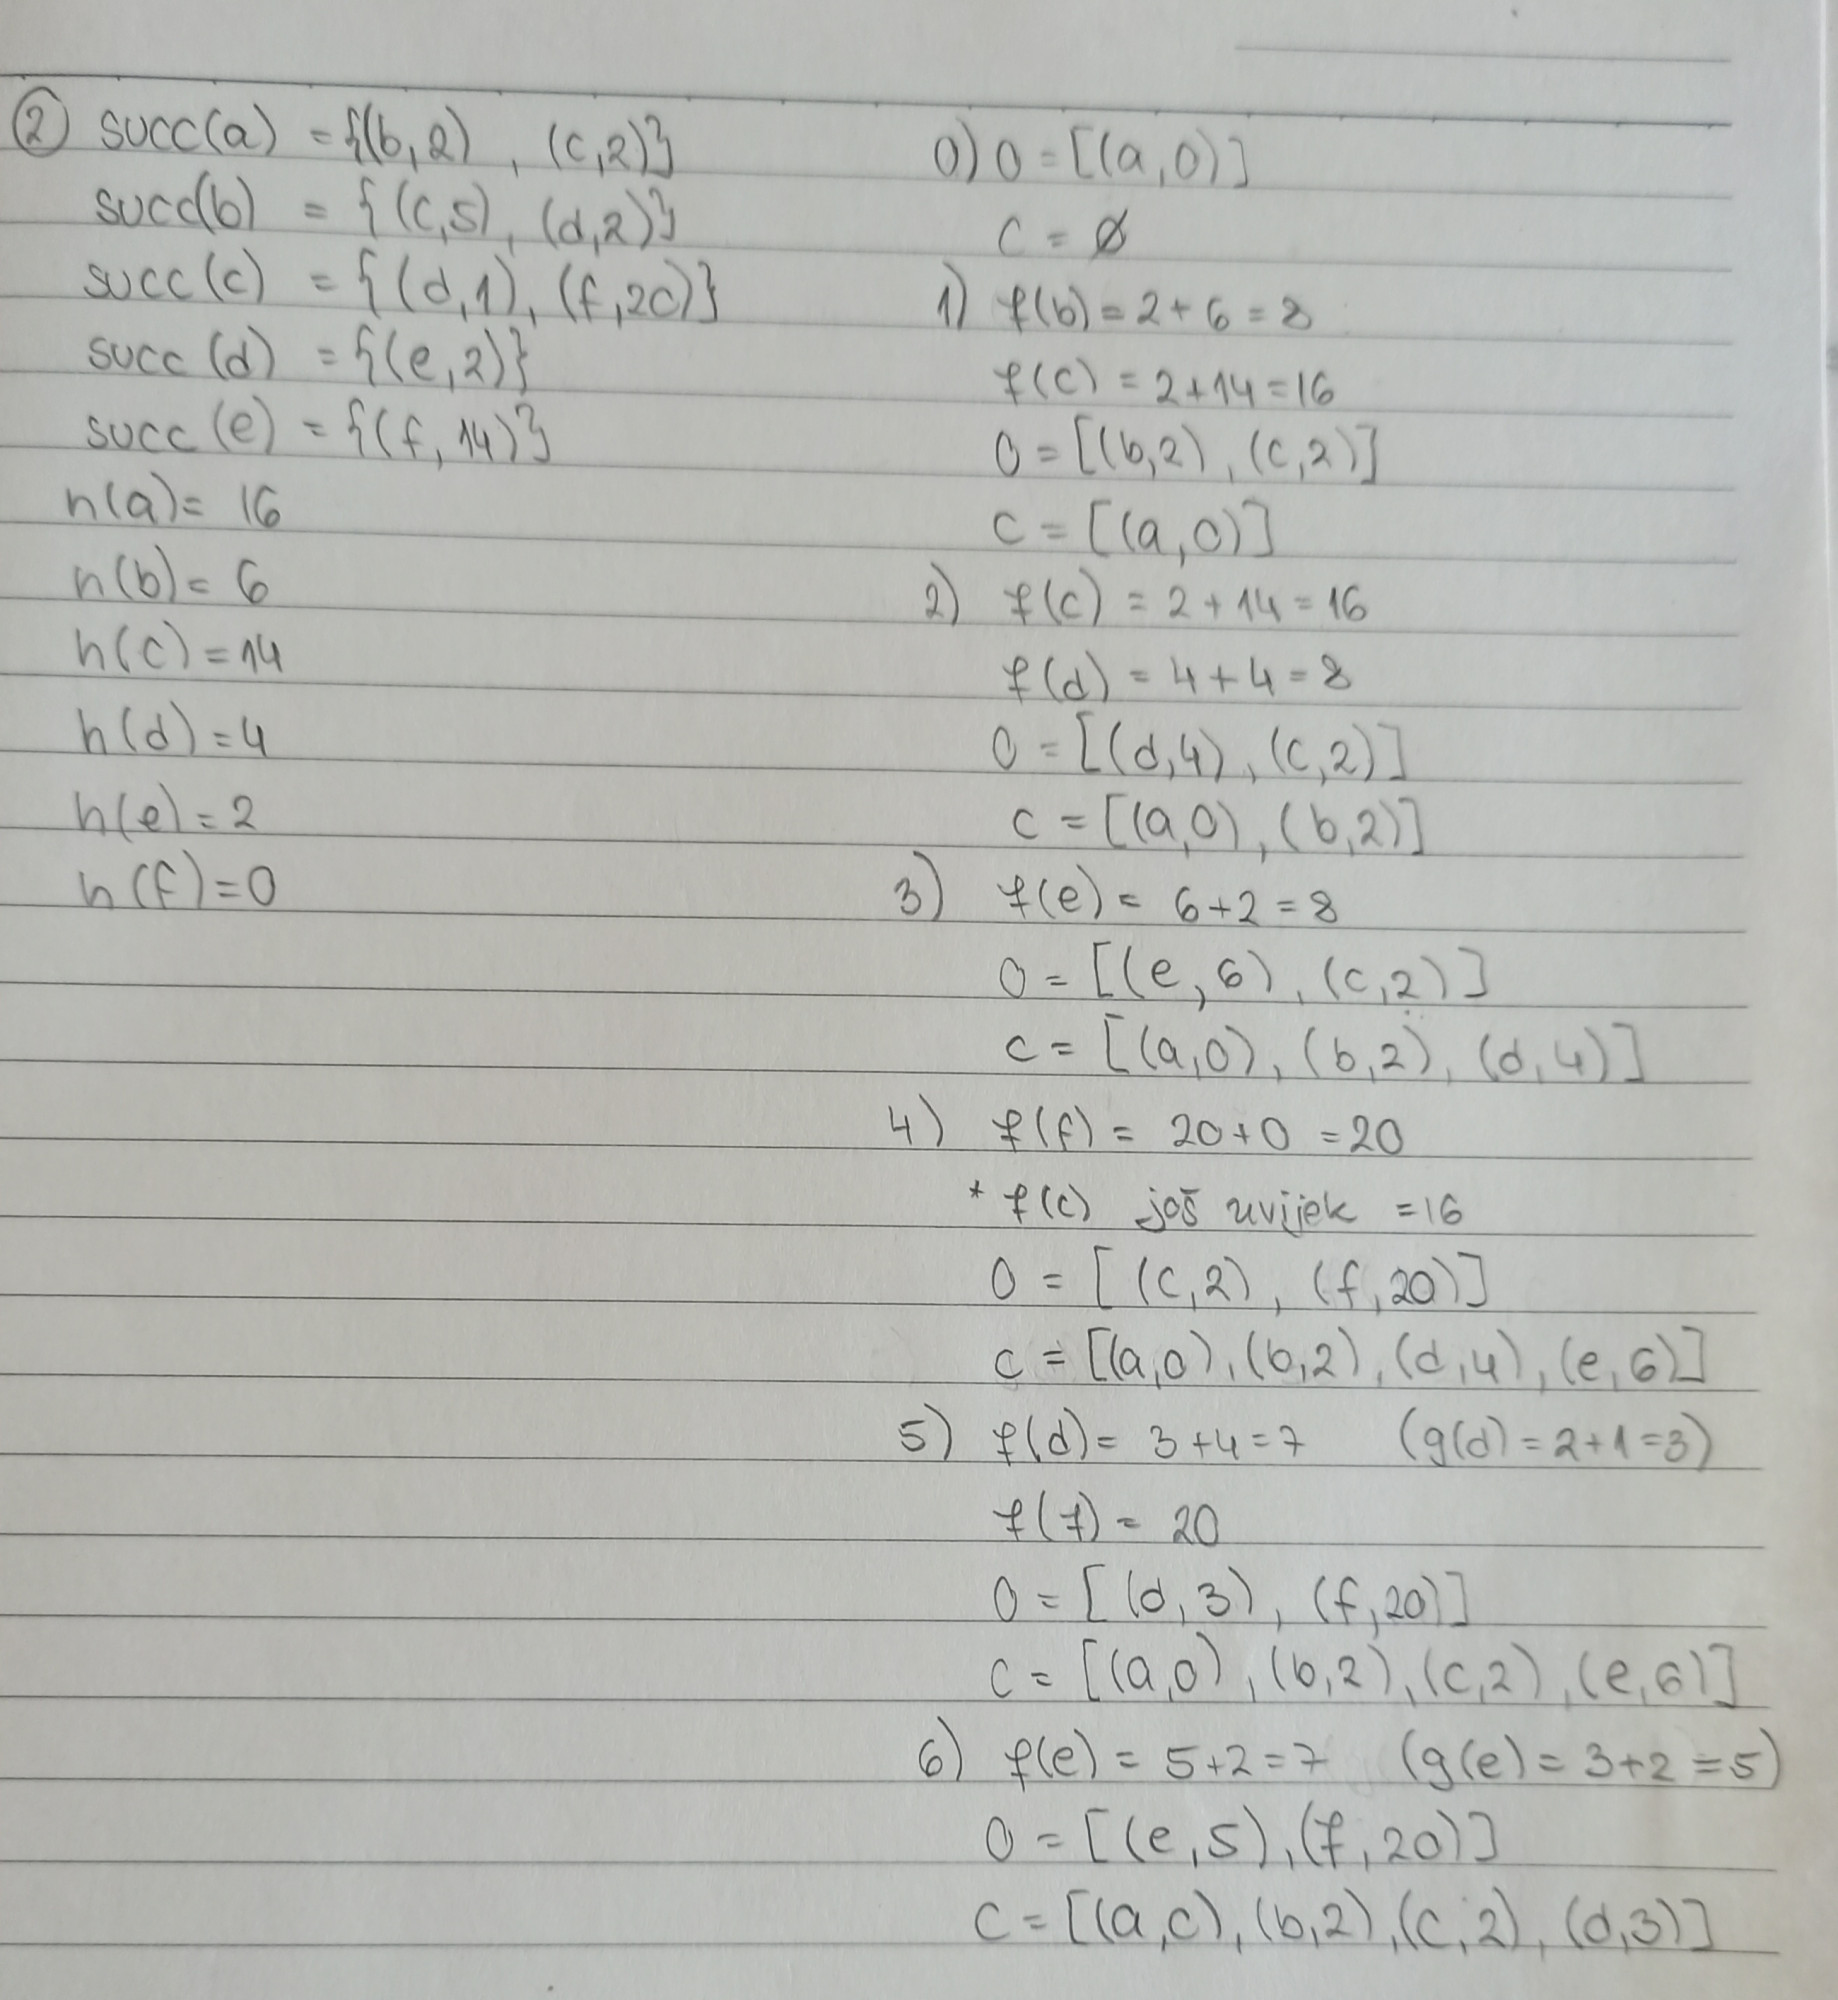 ② succ(a) = {(b,2), (c,2)}
succ(b) = {(c,5), (d,2)}
succ(c) = {(d,1), (f,20)}
succ(d) = {(e,2)}
succ(e) = {(f,14)}
h(a) = 16
h(b) = 6
h(c) = 14
h(d) = 4
h(e) = 2
h(f) = 0
0) O = [(a,0)]
C = Ø
1) f(b) = 2+6 = 8
f(c) = 2+14 = 16
O = [(b,2), (c,2)]
C = [(a,0)]
2) f(c) = 2+14 = 16
f(d) = 4+4 = 8
O = [(d,4), (c,2)]
C = [(a,0), (b,2)]
3) f(e) = 6+2 = 8
O = [(e,6), (c,2)]
C = [(a,0), (b,2), (d,4)]
4) f(f) = 20+0 = 20
* f(c) još uvijek = 16
O = [(c,2), (f,20)]
C = [(a,0), (b,2), (d,4), (e,6)]
5) f(d) = 3+4 = 7 (g(d) = 2+1 = 3)
f(f) = 20
O = [(d,3), (f,20)]
C = [(a,0), (b,2), (c,2), (e,6)]
6) f(e) = 5+2 = 7 (g(e) = 3+2 = 5)
O = [(e,5), (f,20)]
C = [(a,0), (b,2), (c,2), (d,3)]